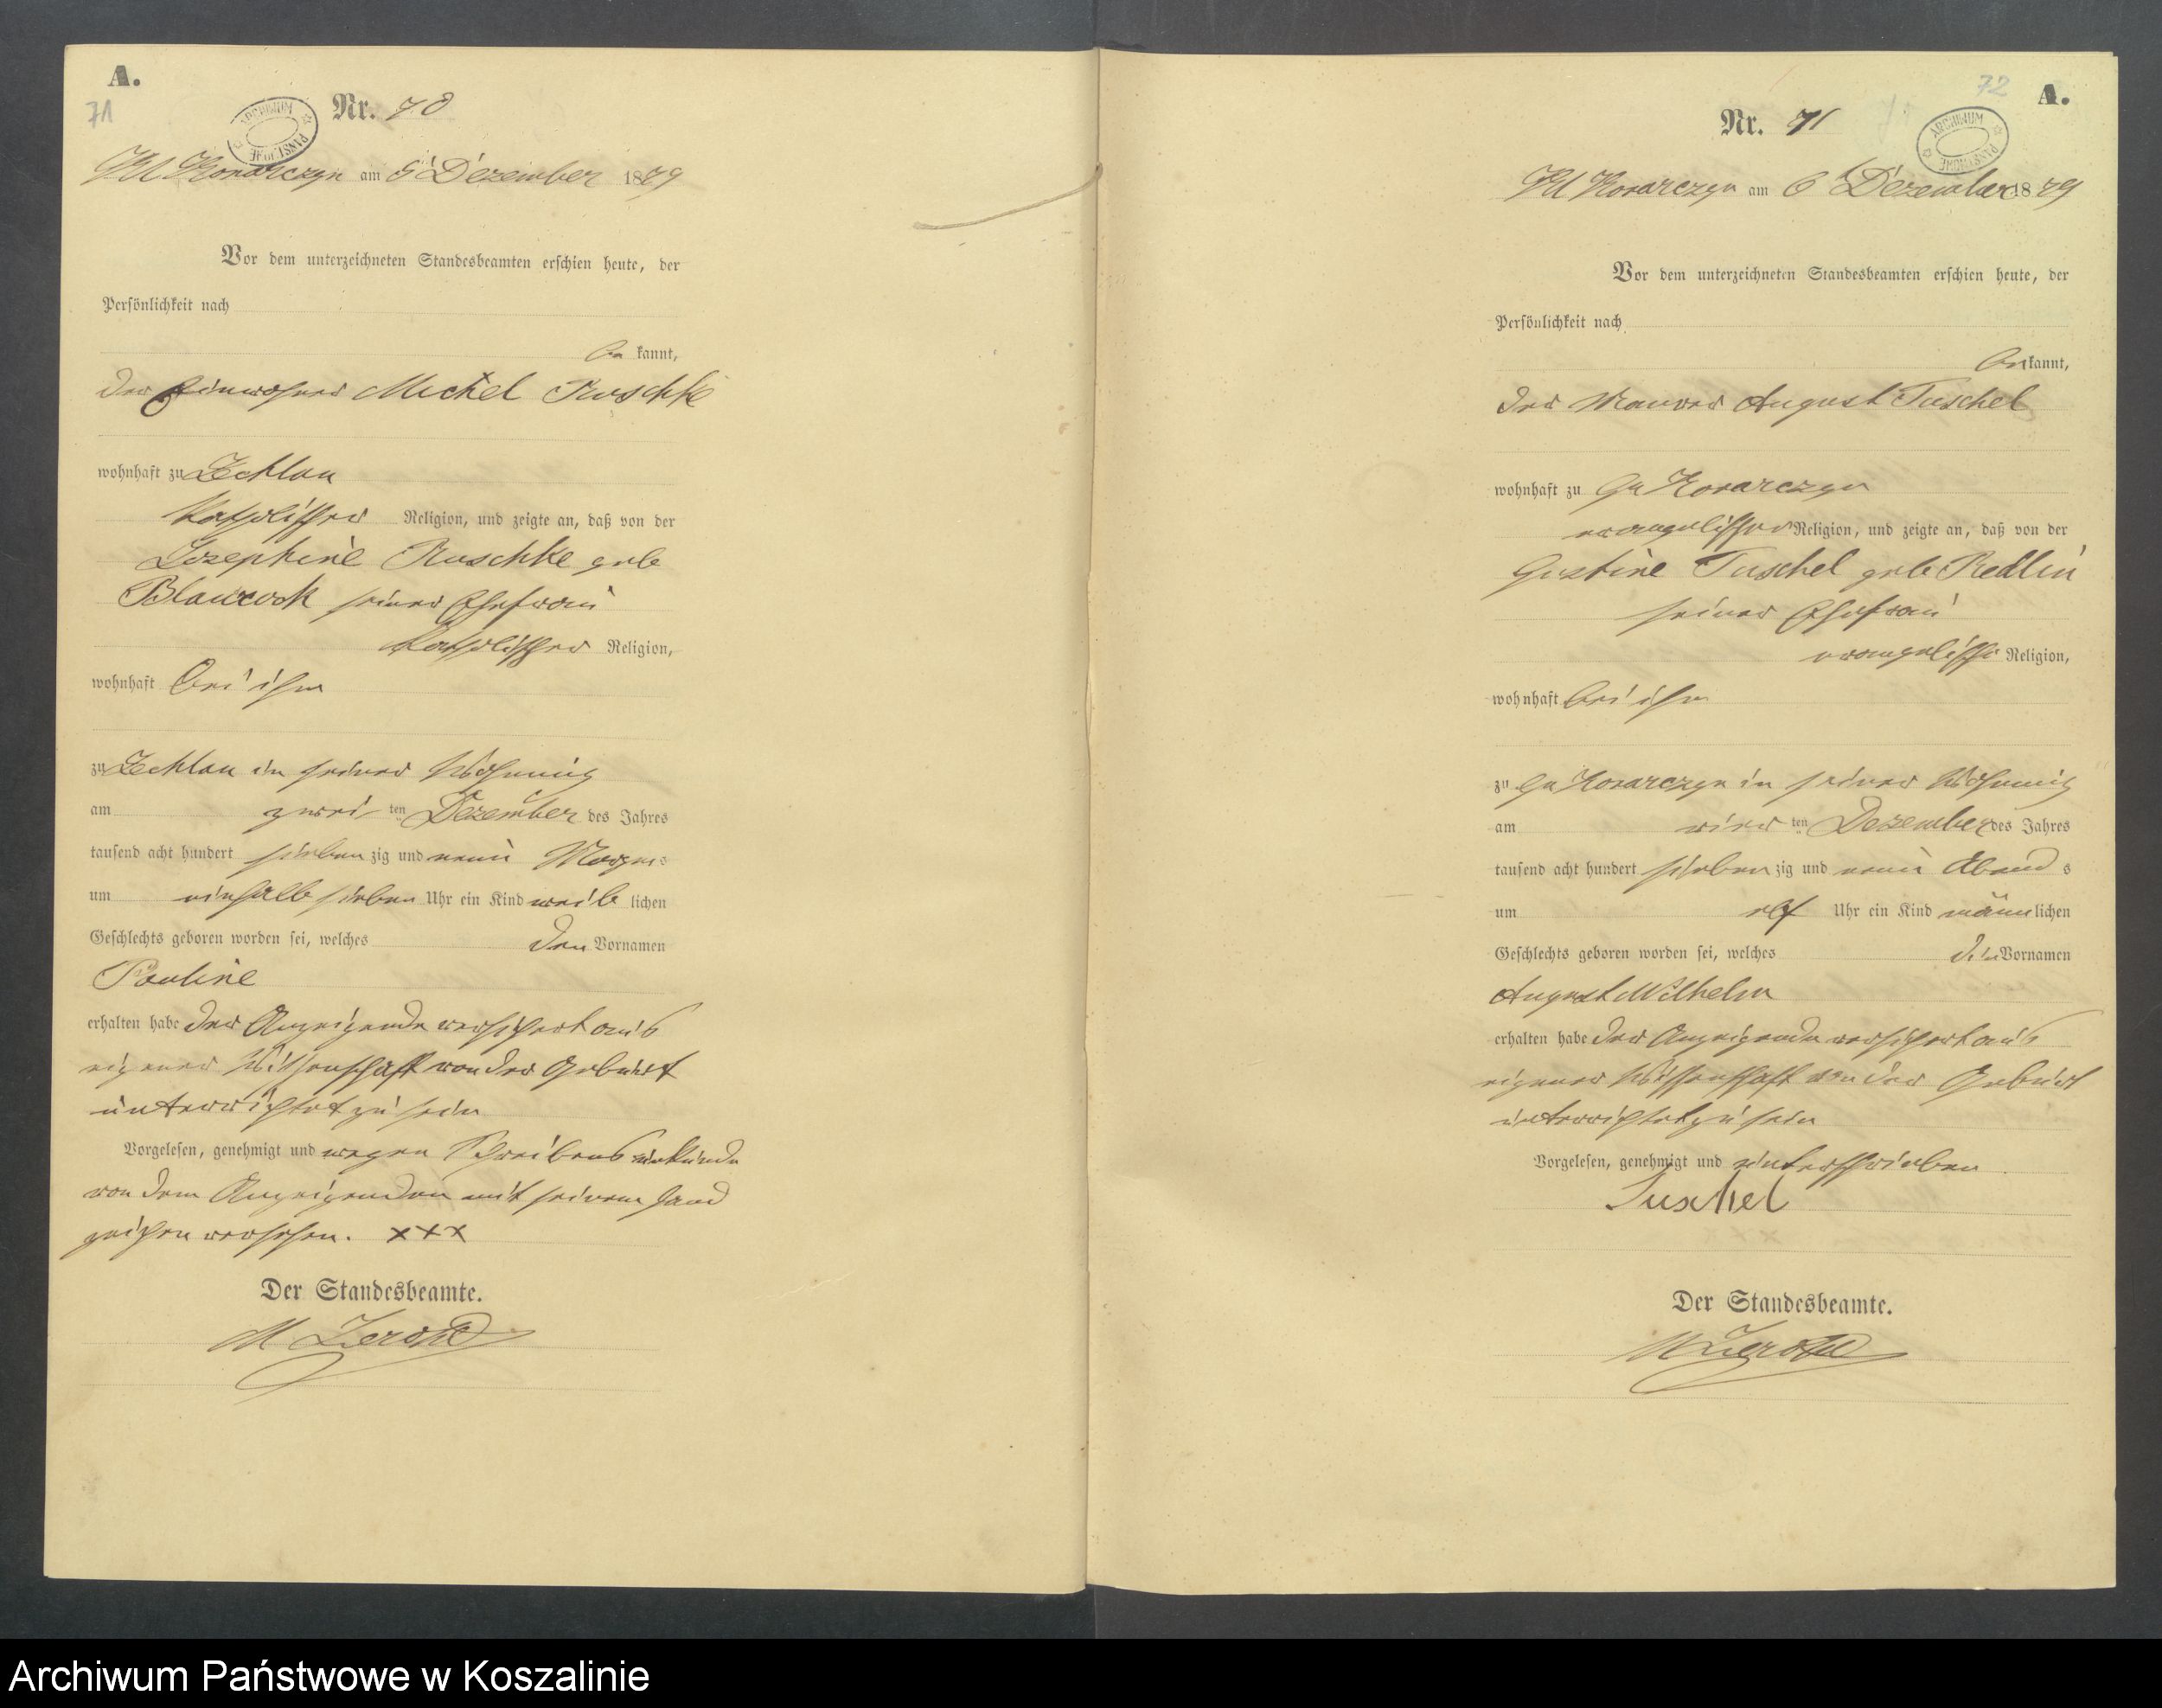 A.
71
ARCHIWUM PAŃSTWOWE
Nr. 70
Kl Konarczyn am 5 Dezember 1879
Vor dem unterzeichneten Standesbeamten erschien heute, der
Persönlichkeit nach
be kannt,
der Einwohner Michel Ruschke
wohnhaft zu Zechlau
katholischer Religion, und zeigte an, daß von der
Josephine Ruschke geb
seiner Ehefrau
katholischer Religion,
wohnhaft bei ihm
zu Zechlau in seiner Wohnung
am zwei ten Dezember des Jahres
tausend acht hundert sieben zig und neun Morgens
um einhalb sieben Uhr ein Kind weib lichen
Geschlechts geboren worden sei, welches den Vornamen
Pauline
erhalten habe der Anzeigende versichert aus
eigener Wissenschaft von der Geburt
unterrichtet zu sein
Vorgelesen, genehmigt und wegen Schreibensunkunde
von dem Anzeigenden mit seinem Hand
zeichen versehen. xxx
Der Standesbeamte.
72
A.
ARCHIWUM PAŃSTWOWE
Nr. 71
Kl Konarczyn am 6 Dezember 1879
Vor dem unterzeichneten Standesbeamten erschien heute, der
Persönlichkeit nach
bekannt,
der Maurer August Tuschel
wohnhaft zu Gr Konarczyn
evangelischer Religion, und zeigte an, daß von der
Gustine Tuschel geb Redlin
seiner Ehefrau
evangelische Religion,
wohnhaft bei ihm
zu Gr Konarczyn in seiner Wohnung
am vier ten Dezember des Jahres
tausend acht hundert sieben zig und neun Abend s
um elf Uhr ein Kind männlichen
Geschlechts geboren worden sei, welches den Vornamen
August Wilhelm
erhalten habe der Anzeigende versichert aus
eigener Wissenschaft von der Geburt
unterrichtet zu sein
Vorgelesen, genehmigt und unterschrieben
Tuschel
Der Standesbeamte.
Archiwum Państwowe w Koszalinie